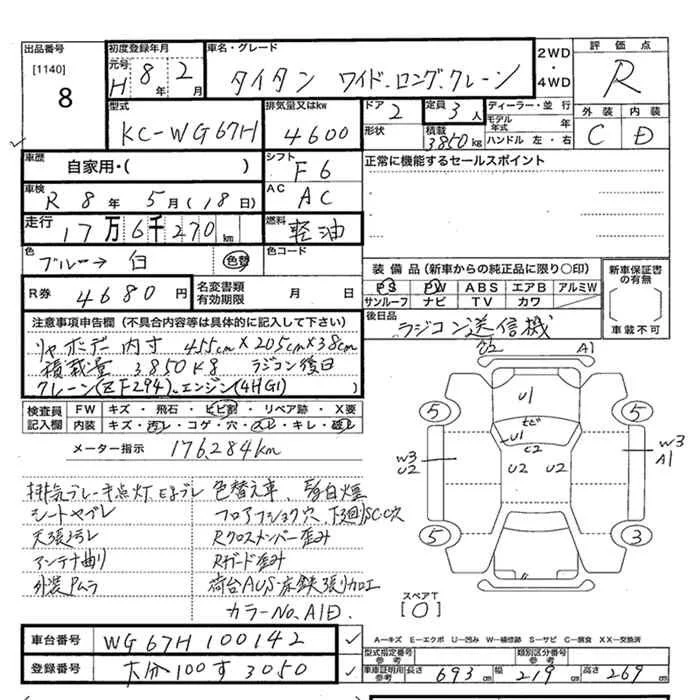 出品番号 [1140] 8
初度登録年月 元号 H 8年 2月
車名・グレード タイタン ワイド.ロング.クレーン
2WD・4WD
評価点 R
型式 KC-WG67H
排気量又はkw 4600
ドア 2
形状
定員 3人
積載 3850kg
ディーラー・並行
モデル年式 年
ハンドル 左・右
外装 C 内装 D
車歴 自家用・( )
シフト F6
正常に機能するセールスポイント
車検 R 8年 5月(18日)
AC AC
走行 17万6千270km
燃料 軽油
色 ブルー→白 色替
色コード
装備品(新車からの純正品に限り○印)
PS PW ABS エアB アルミW
サンルーフ ナビ TV カワ
新車保証書の有無
車載不可
R券 4680円
名変書類有効期限 月 日
後日品 ラジコン送信機
注意事項申告欄(不具合内容等は具体的に記入して下さい)
リヤボデー内寸 455cm×205cm×38cm
積載量 3850kg ラジコン後日
クレーン(ZF294).エンジン(4HG1)
検査員記入欄 FW キズ・飛石・ヒビ割・リペア跡・X要
内装 キズ・汚レ・コゲ・穴・スレ・キレ・破レ
メーター指示 176,284km
排気ブレーキ点灯 色替え車、白煙
シートヤブレ フロアフショク穴、下回りSC穴
天張ヨゴレ Rクロスメンバー歪み
アンテナ曲り Rガード歪み
外装Pムラ 荷台AUS・床鉄張り加工
カラーNo.A1D.
U2 A1
U1
5 5
ヒビ
U1
C2
W3 U2
U2 U2
W3 A1
5 3
スペアT
[0]
車台番号 WG67H 100142
登録番号 大分100す3050
A―キズ E―エクボ U―凹み W―補修跡 S―サビ C―腐食 XX―交換済
型式指定番号 参考
類別区分番号 参考
車庫証明用参考 長さ 693cm 幅 219cm 高さ 269cm